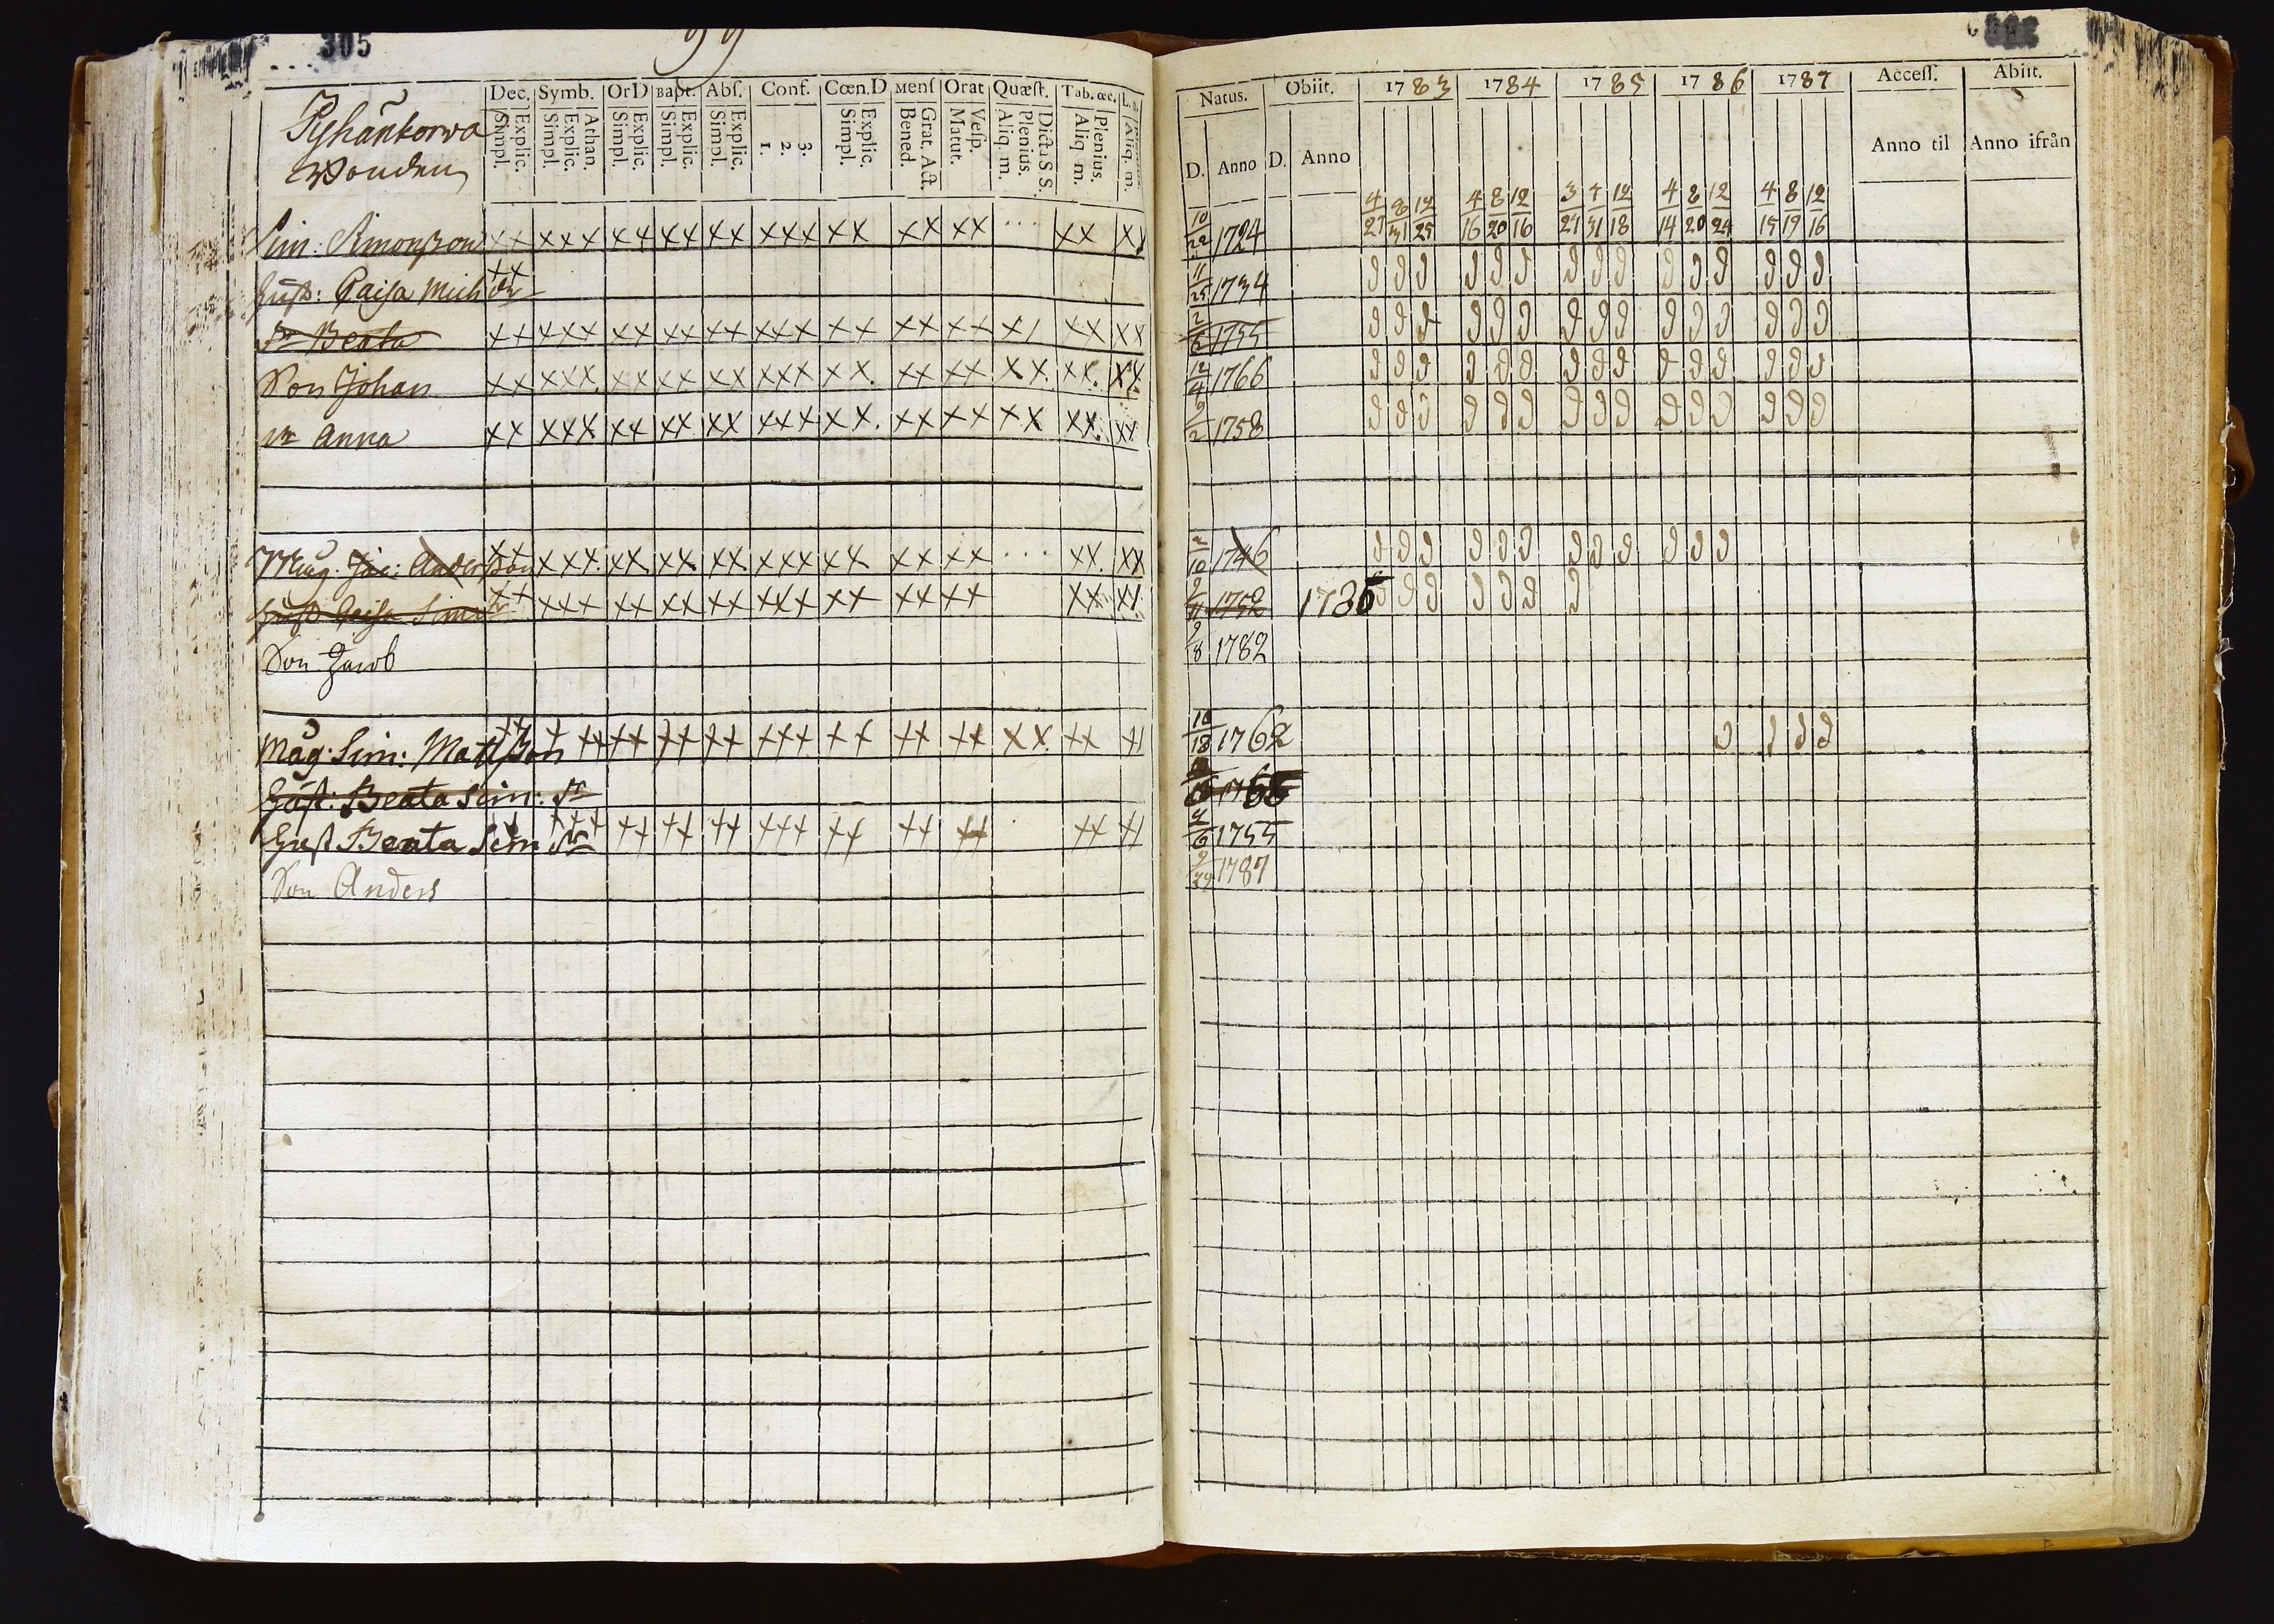 305
99
Dec. Symb. OrD Bapt. Abs. Conf. Cœn.D Mens Orat Quæst. Tab. œc.
Explic. Simpl. Athan. Explic. Simpl. Explic. Simpl. Explic. Simpl. Explic. Simpl. 3. 2. 1. Explic. Simpl. Grat. Act. Bened. Vesp. Matut. Dicta S S. Plenius. Aliq. m. Plenius. Aliq. m. Aliq. m.
Pyhänkorwa
Wouden
Sim: Simonsson xx xxx xx xx xx xxx xx xx xx ... xx xx
Hust: Caisa Mich dr xx
dr Beata xx xxx xx xx xx xxx xx xx xx x/ xx xx
Son Johan xx xxx xx xx xx xxx xx. xx xx xx. xx. xx
dr Anna xx xxx xx xx xx xxx xx. xx xx xx xx. xx
Måg. Jac: Andersson xx xxx. xx xx xx xxx xx xx xx ... xx. xx
Hust Caisa Sim dr xx xxx xx xx xx xxx xx xx xx xx xx
Son Jacob
Måg: Sim: Mattsson xx xxx xx xx xx xxx xx xx xx xx xx xx
Hust: Beata Sim: dr
Hust Beata Sim dr xx xxx xx xx xx xxx xx xx xx xx xx
Son Anders
Natus. Obiit. 1783 1784 1785 1786 1787 Access. Abiit.
D. Anno D. Anno Anno til Anno ifrån
4/27 8/31 12/25 4/16 8/20 12/16 3/27 7/31 12/18 4/14 8/20 12/24 4/15 8/19 12/16
10/22 1724
11/25 1734
2/6 1755
12/4 1766
9/2 1758
2/10 1746
9/11 1752 1785
9/8 1782
10/18 1762
1766
2/6 1755
9/29 1787